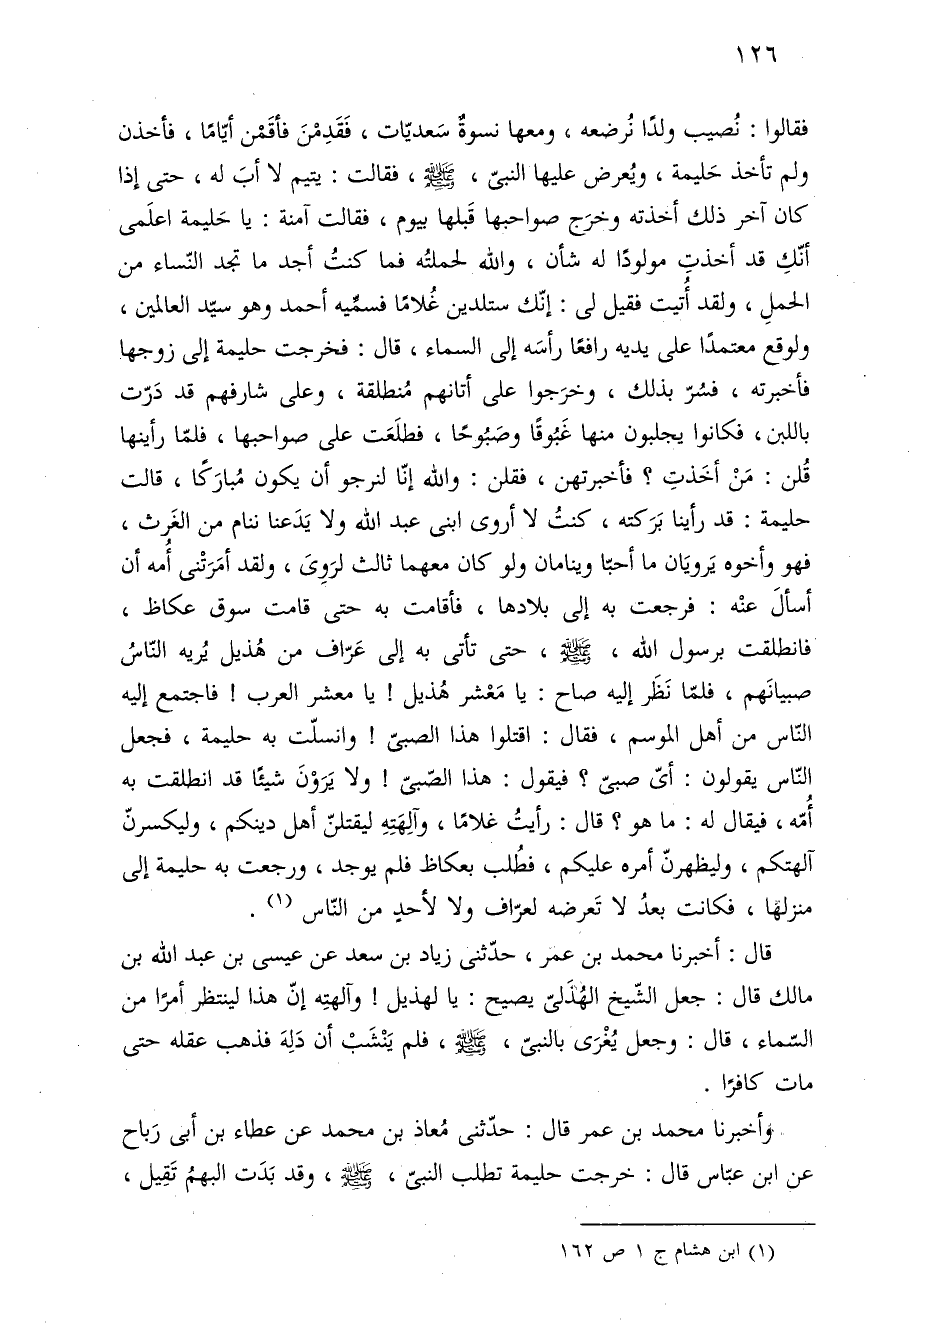 ١٢٦
فقالوا : نُصيب ولدًا نُرضعه ، ومعها نسوةٌ سَعديّات ، فَقَدِمْنَ فأقَمْن أيّامًا ، فأخذن
ولم تأخذ حَليمة ، ويُعرض عليها النبىّ ، ﷺ ، فقالت : يتيم لا أبَ له ، حتى إذا
كان آخر ذلك أخذته وخرَج صواحبها قَبلها بيوم ، فقالت آمنة : يا حَليمة اعلَمى
أنّكِ قد أخذتِ مولودًا له شأن ، والله لحملتُه فما كنتُ أجد ما تجد النّساء من
الحملِ ، ولقد أُتيت فقيل لى : إنّك ستلدين غُلامًا فسمِّيه أحمد وهو سيّد العالمين ،
ولوقع معتمدًا على يديه رافعًا رأسَه إلى السماء ، قال : فخرجت حليمة إلى زوجها
فأخبرته ، فسُرّ بذلك ، وخرَجوا على أتانهم مُنطلقة ، وعلى شارفهم قد دَرّت
باللبن، فكانوا يحلبون منها غَبُوقًا وصَبُوحًا ، فطلَعَت على صواحبها ، فلمّا رأينها
قُلن : مَنْ أخَذتِ ؟ فأخبرتهن ، فقلن : والله إنّا لنرجو أن يكون مُبارَكًا ، قالت
حليمة : قد رأينا بَرَكته ، كنتُ لا أروى ابنى عبد الله ولا يَدَعنا ننام من الغَرث ،
فهو وأخوه يَرويَان ما أحبّا وينامان ولو كان معهما ثالث لرَوِىَ ، ولقد أمَرَتْنى أُمه أن
أسألَ عنْه : فرجعت به إلى بلادها ، فأقامت به حتى قامت سوق عكاظ ،
فانطلقت برسول الله ، ﷺ ، حتى تأتى به إلى عَرّاف من هُذيل يُريه النّاسُ
صبيانَهم ، فلمّا نَظَر إليه صاح : يا مَعْشر هُذيل ! يا معشر العرب ! فاجتمع إليه
النّاس من أهل الموسم ، فقال : اقتلوا هذا الصبىّ ! وانسلّت به حليمة ، فجعل
النّاس يقولون : أىّ صبىّ ؟ فيقول : هذا الصّبىّ ! ولا يَرَوْنَ شيئًا قد انطلقت به
أُمّه ، فيقال له : ما هو ؟ قال : رأيتُ غلامًا ، وآلِهَتِهِ ليقتلنّ أهل دينكم ، وليكسرنّ
آلهتكم ، وليظهرنّ أمره عليكم ، فطُلب بعكاظ فلم يوجد ، ورجعت به حليمة إلى
منزلها ، فكانت بعدُ لا تَعرضه لعرّاف ولا لأحدٍ من النّاس (١) .
قال : أخبرنا محمد بن عمر ، حدّثنى زياد بن سعد عن عيسى بن عبد الله بن
مالك قال : جعل الشّيخ الهُذَلىّ يصيح : يا لهذيل ! وآلهتِه إنّ هذا لينتظر أمرًا من
السّماء ، قال : وجعل يُغْرَى بالنبىّ ، ﷺ ، فلم يَنْشَبْ أن دَلِهَ فذهب عقله حتى
مات كافرًا .
وأخبرنا محمد بن عمر قال : حدّثنى مُعاذ بن محمد عن عطاء بن أبى رَباح
عن ابن عبّاس قال : خرجت حليمة تطلب النبىّ ، ﷺ ، وقد بَدَت البهمُ تَقِيل ،
(١) ابن هشام ج ١ ص ١٦٢